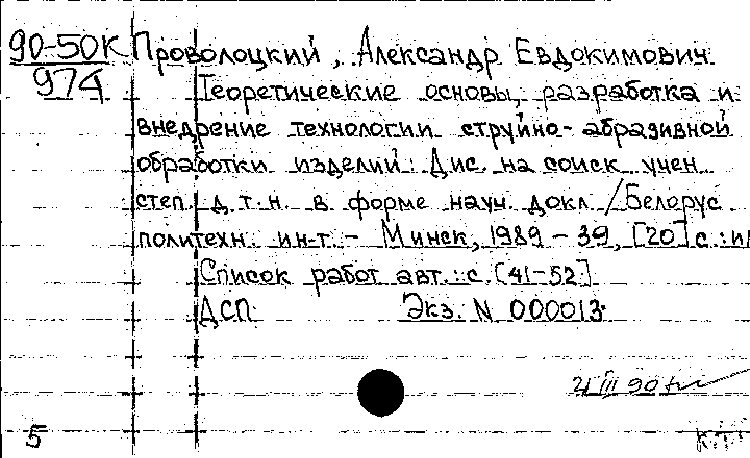 90-50К Проволоцкий, Александр Евдокимович.
974 Теоретические основы, разработка и
внедрение технологии струйно-абразивной
обработки изделий: Дис. на соиск. учен.
степ. д.т.н. в форме науч. докл. / Белорус.
политехн. ин-т. - Минск, 1989 - 39, [20] с.: ил
Список работ авт.: с. [41-52]
ДСП Экз. N 000013
III 90
5 К.Т.